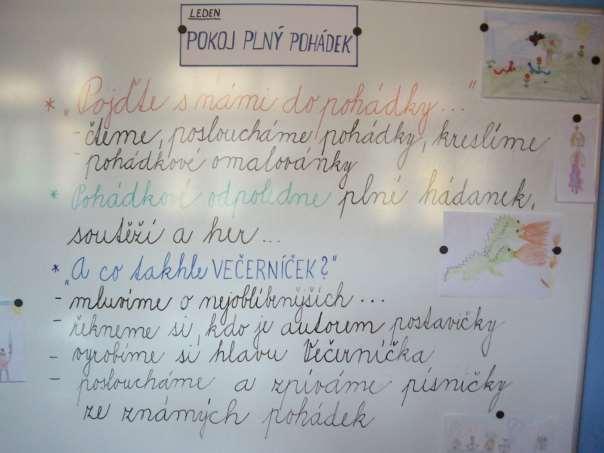 LEDEN
POKOJ PLNÝ POHÁDEK
* „Pojďte s námi do pohádky..."
- čteme, posloucháme pohádky, kreslíme
- pohádkové omalovánky
* Pohádkové odpoledne plné hádanek,
soutěží a her...
* „A co takhle VEČERNÍČEK?"
- mluvíme o nejoblíbenějších...
- řekneme si, kdo je autorem postavičky
- vyrobíme si hlavu Večerníčka
- posloucháme a zpíváme písničky
ze známých pohádek